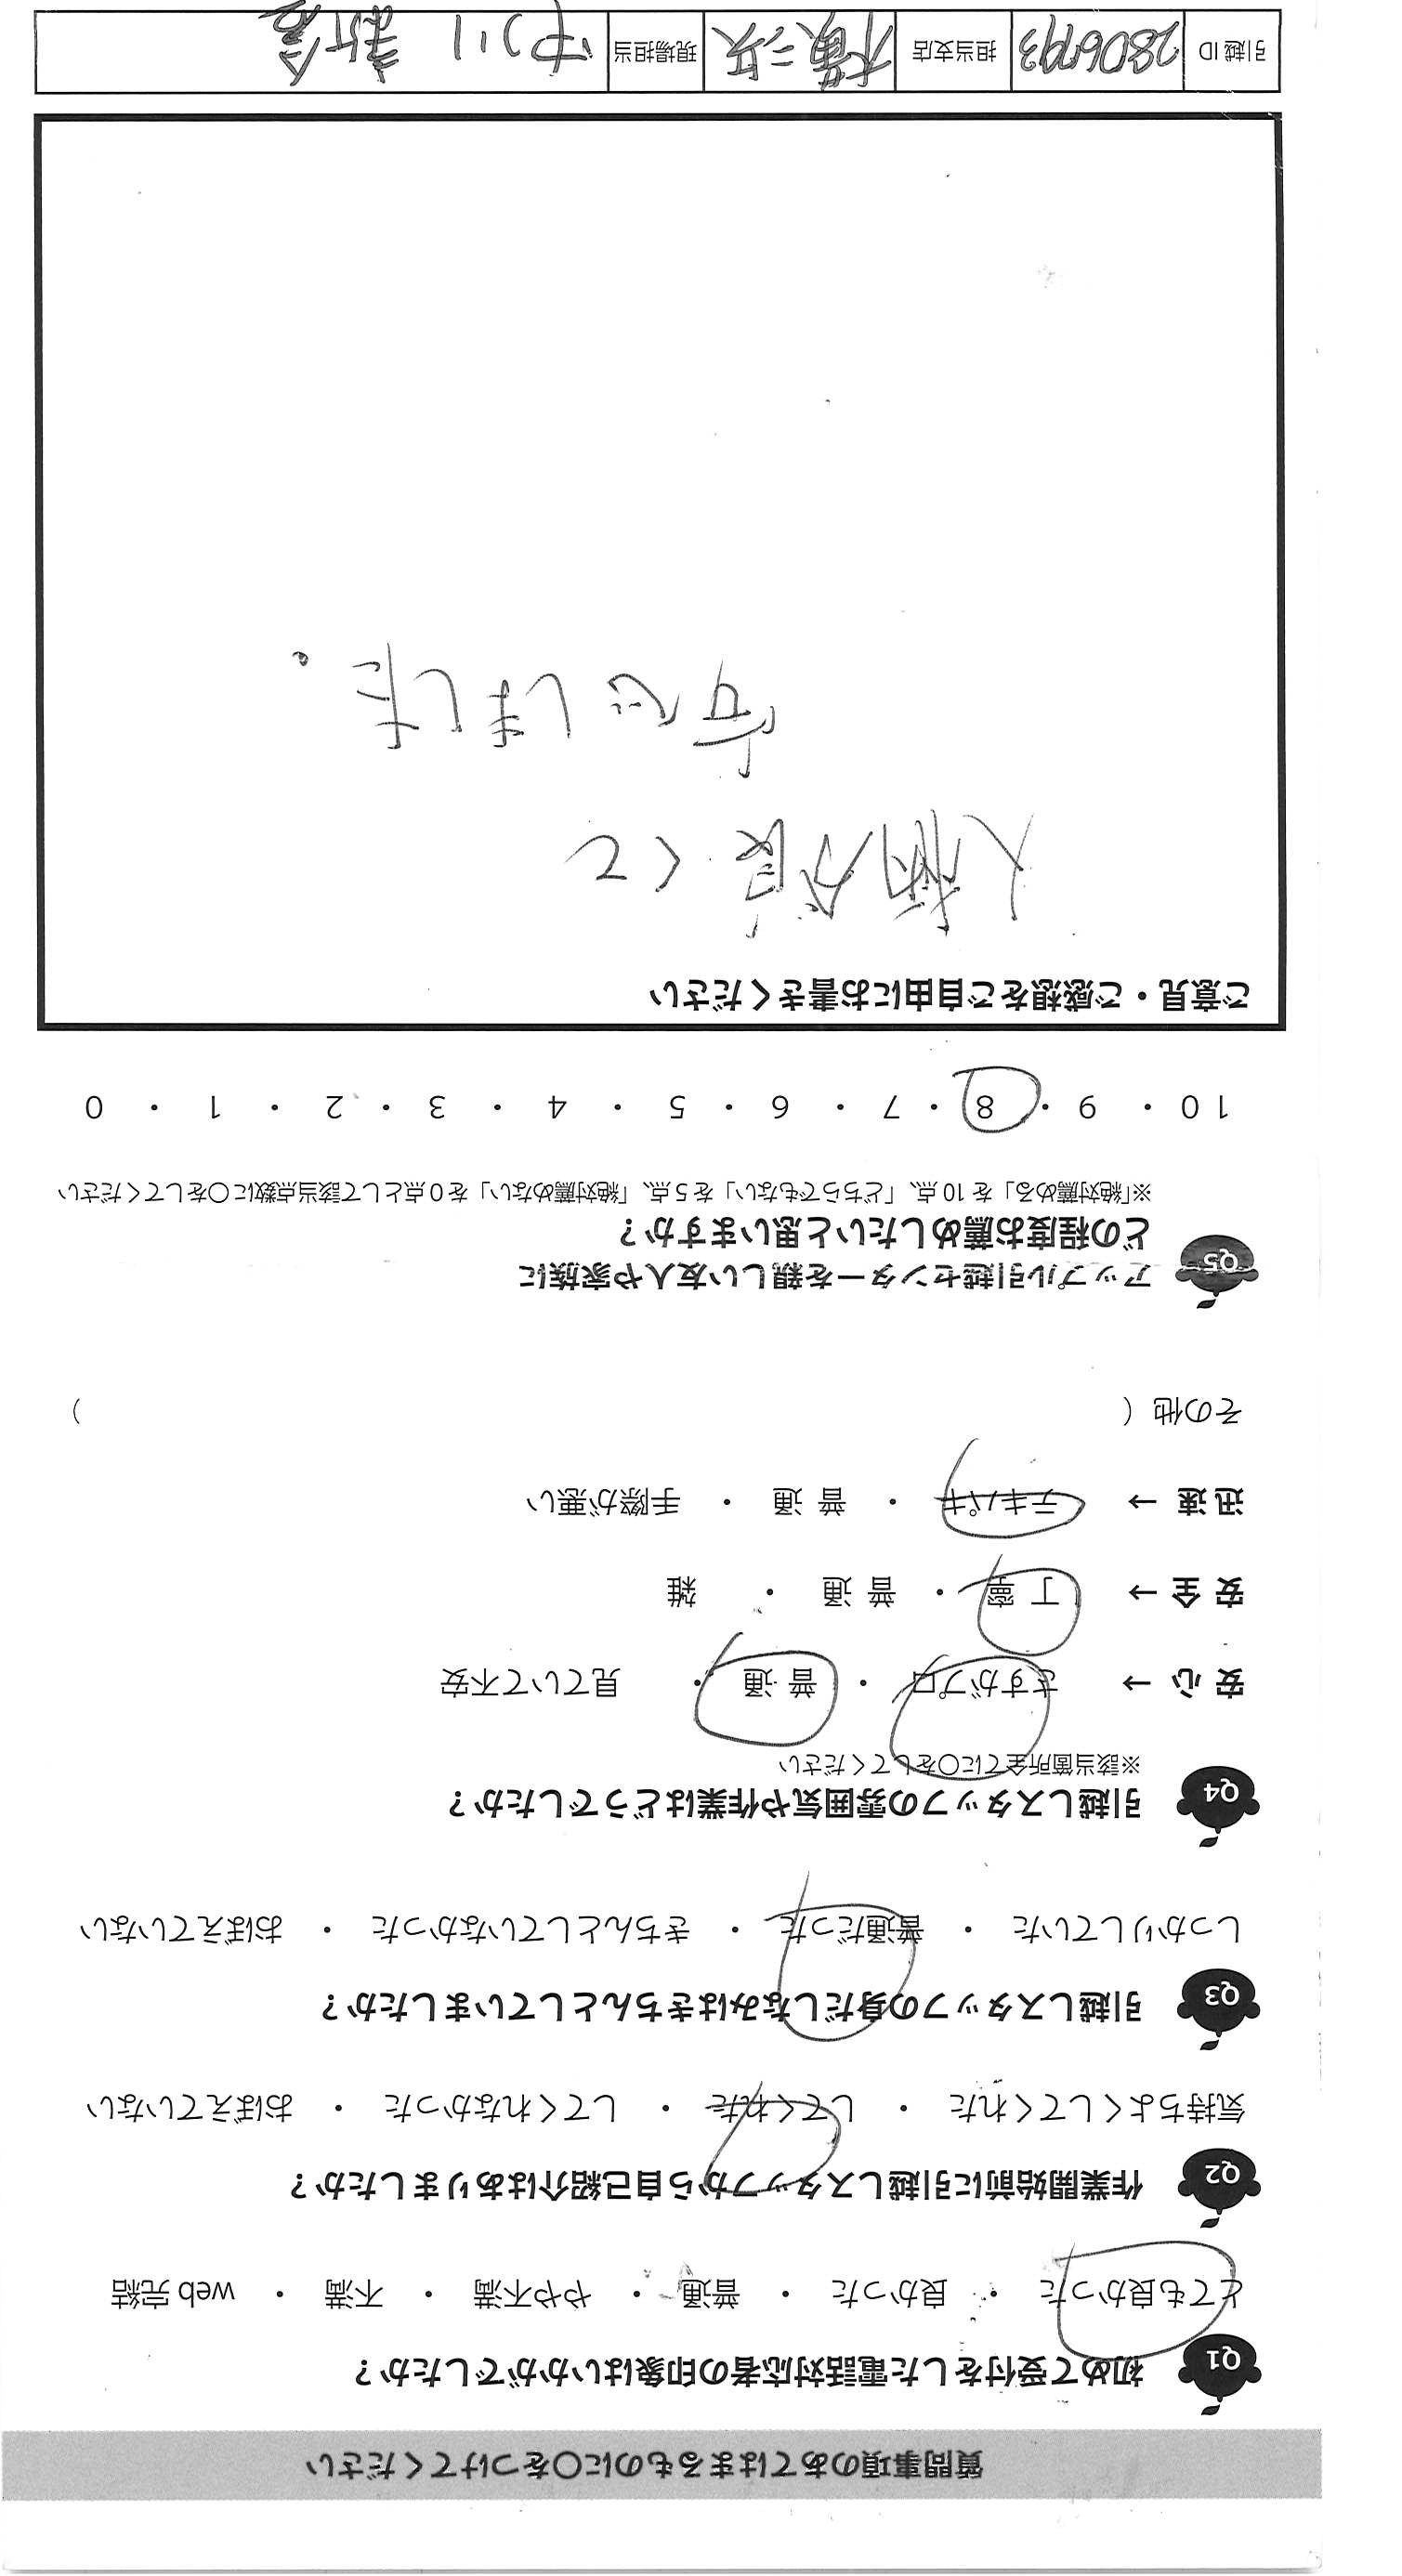 質問事項のあてはまるものに〇をつけてください
Q1 初めて受付をした電話対応者の印象はいかがでしたか?
とても良かった ・ 良かった ・ 普通 ・ やや不満 ・ 不満 ・ web 完結
Q2 作業開始前に引越しスタッフから自己紹介はありましたか?
気持ちよくしてくれた ・ してくれた ・ してくれなかった ・ おぼえていない
Q3 引越しスタッフの身だしなみはきちんとしていましたか?
しっかりしていた ・ 普通だった ・ きちんとしていなかった ・ おぼえていない
Q4 引越しスタッフの雰囲気や作業はどうでしたか?
※該当箇所全てに〇をしてください
安心→ さすがプロ ・ 普通 ・ 見ていて不安
安全→ 丁寧 ・ 普通 ・ 雑
迅速→ テキパキ ・ 普通 ・ 手際が悪い
その他 ( )
Q5 アップル引越センターを親しい友人や家族に
どの程度お薦めしたいと思いますか?
※「絶対薦める」を10点、「どちらでもない」を5点、「絶対薦めない」を0点として該当点数に〇をしてください
10 ・ 9 ・ 8 ・ 7 ・ 6 ・ 5 ・ 4 ・ 3 ・ 2 ・ 1 ・ 0
ご意見・ご感想をご自由にお書きください
人柄が良くて
安心しました。
引越ID 2806793 担当支店 横浜 現場担当 中川 新倉